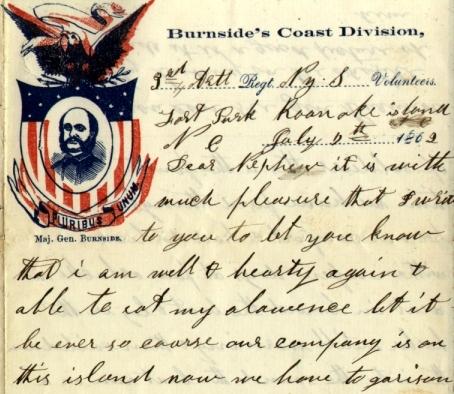 Burnside's Coast Division,
3rd Artt Regt. N. y S Volunteers.
Fort Park Roanoke island
N C July th 1863
Dear Nephew it is with
much pleasure that I write
to you to let you know
that i am well & hearty again &
able to eat my alowence let it
be ever so course our company is on
this island now we have to garison
E PLURIBUS UNUM
Maj. Gen. Burnside.